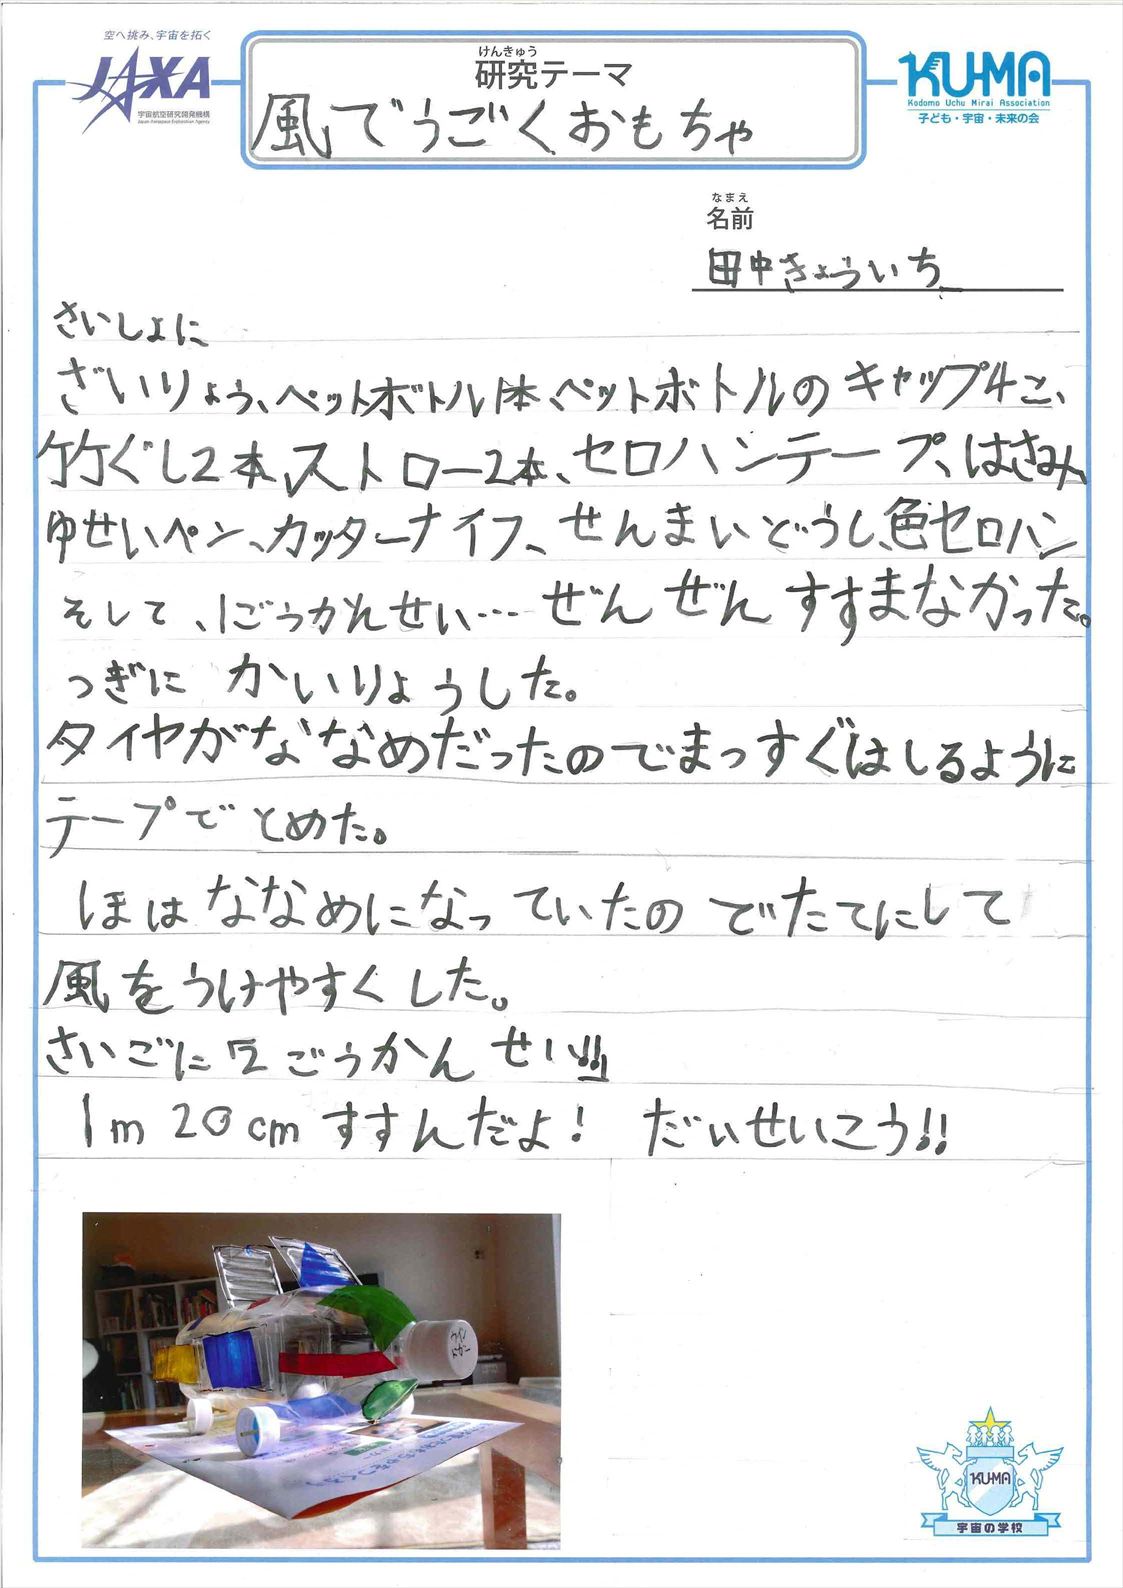 空へ挑み、宇宙を拓く
JAXA
宇宙航空研究開発機構
Japan Aerospace Exploration Agency
けんきゅう
研究テーマ
風でうごくおもちゃ
KU-MA
Kodomo Uchu Mirai Association
子ども・宇宙・未来の会
なまえ
名前
田中きょういち
さいしょに
ざいりょう、ペットボトル1本、ペットボトルのキャップ4こ、
竹ぐし2本、ストロー2本、セロハンテープ、はさみ、
ゆせいペン、カッターナイフ、せんまいどうし、色セロハン
そして、1ごうかんせい…ぜんぜんすすまなかった。
つぎに かいりょうした。
タイヤがななめだったのでまっすぐはしるように
テープでとめた。
ほはななめになっていたのでたてにして
風をうけやすくした。
さいごに2ごうかんせい!!
1m20cmすすんだよ! だいせいこう!!
ウイン
KU-MA
宇宙の学校